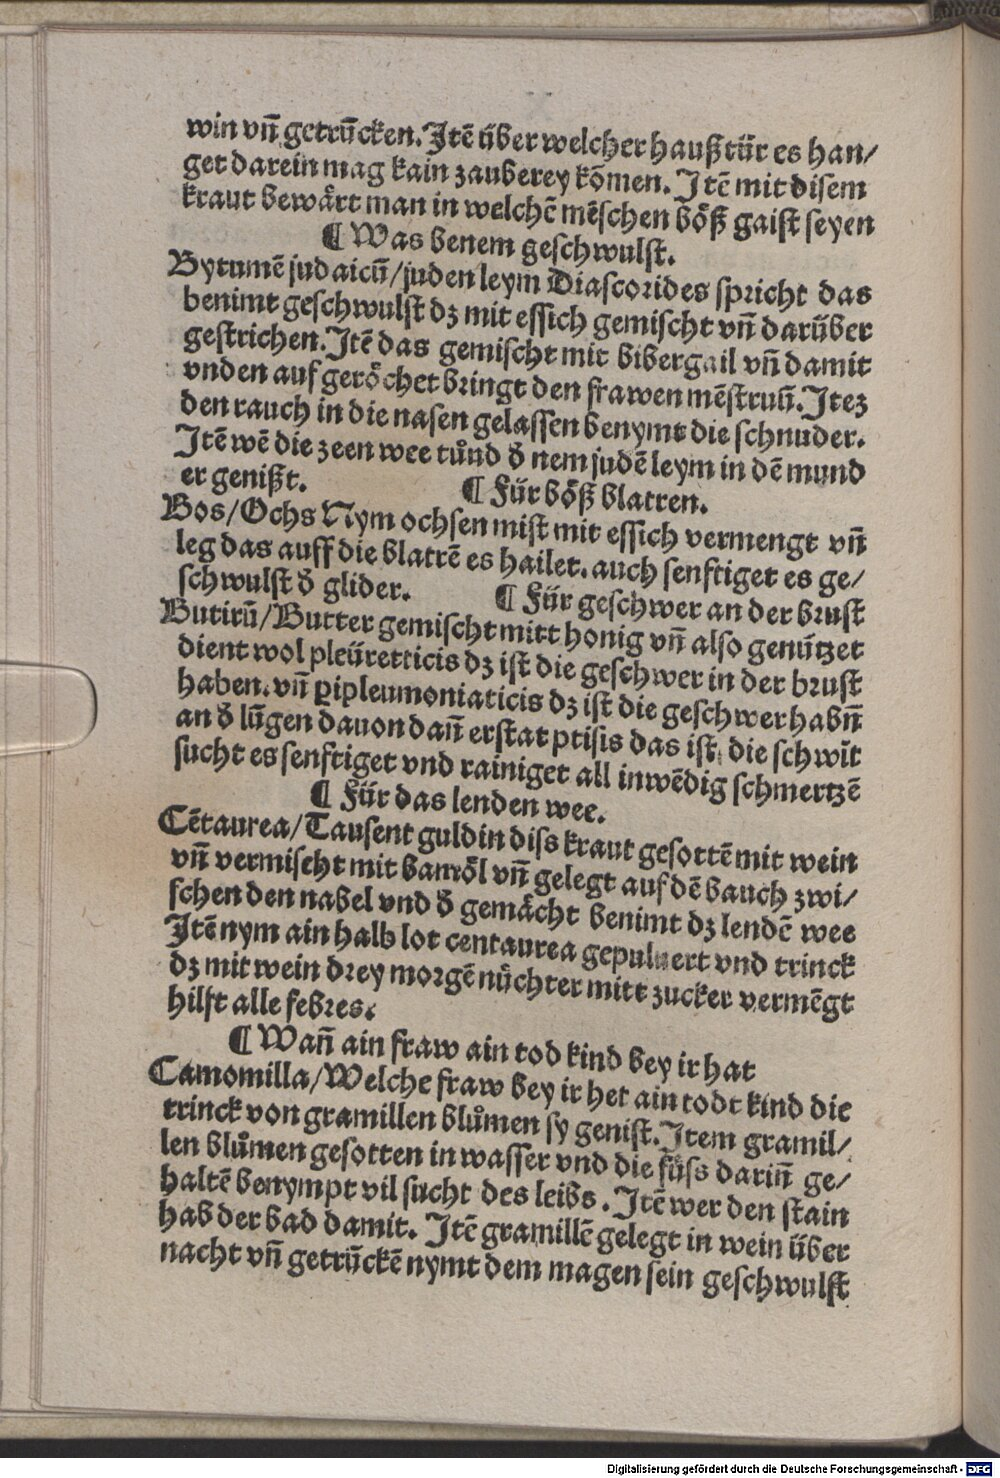 win vñ getrūcken. Jtē über welcher haußtür es han/
get darein mag kain zauberey kōmen. Jtē mit disem
kraut bewårt man in welchē mēschen böß gaist seyen
¶ Was benem geschwulst.
Bytumē judaicū/juden leym Diascorides spricht das
benimt geschwulst dz mit essich gemischt vñ darüber
gestrichen. Jtē das gemischt mit bibergail vñ damit
vnden auf geröchet bringt den frawen mēstruū. Jtez
den rauch in die nasen gelassen benymt die schnuder.
Jtē wē die zeen wee tůnd ð nem judē leym in dē mund
er genißt.
¶ Für böß blatren.
Bos/Ochs Nym ochsen mist mit essich vermengt vñ
leg das auff die blatrē es hailet. auch senftiget es ge/
schwulst ð glider.
¶ Für geschwer an der brust
Butirū/Butter gemischt mitt honig vñ also genützet
dient wol pleüretticis dz ist die geschwer in der brust
haben. vñ pipleumoniaticis dz ist die geschwer habñ
an ð lūgen dauon dañ erstat ptisis das ist die schwīt
sucht es senftiget vnd rainiget all inwēdig schmertzē
¶ Für das lenden wee.
Cētaurea/Tausent guldin diss kraut gesottē mit wein
vñ vermischt mit bamöl vñ gelegt auf dē bauch zwi/
schen den nabel vnd ð gemächt benimt dz lendē wee
Jtē nym ain halb lot centaurea gepuluert vnd trinck
dz mit wein drey morgē nüchter mitt zucker vermēgt
hilft alle febres.
¶ Wañ ain fraw ain tod kind bey ir hat
Camomilla/Welche fraw bey ir het ain todt kind die
trinck von gramillen blůmen sy genist. Jtem gramil/
len blůmen gesotten in wasser vnd die füss dariñ ge/
haltē benympt vil sucht des leibs. Jtē wer den stain
hab der bad damit. Jtē gramillē gelegt in wein über
nacht vñ getrūckē nymt dem magen sein geschwulst
Digitalisierung gefördert durch die Deutsche Forschungsgemeinschaft - DFG